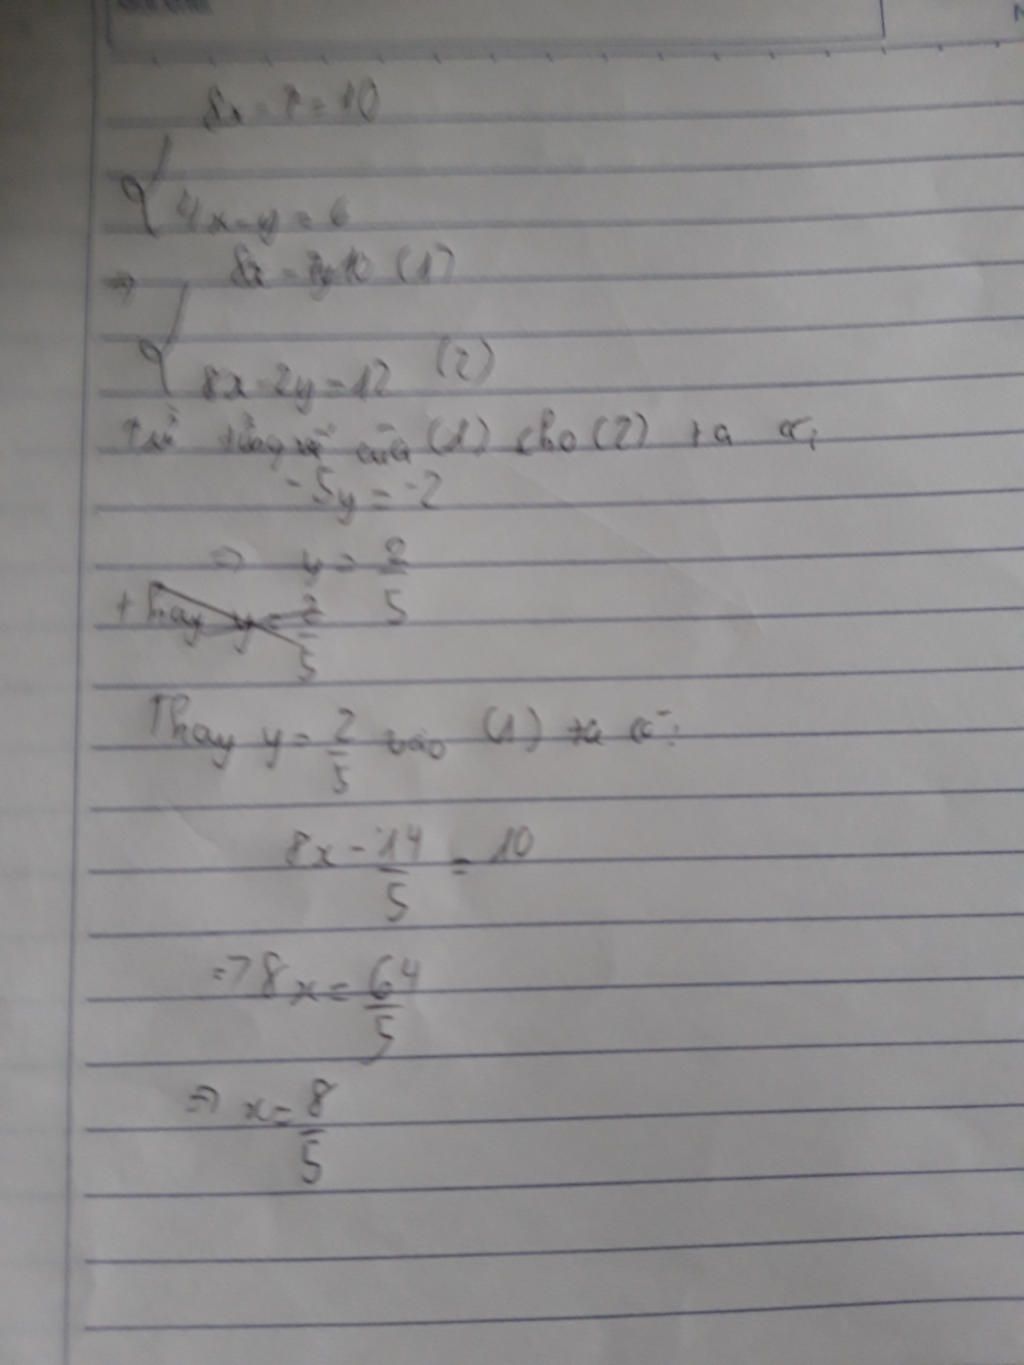 8x - 7 = 10
4x - y = 6
=> 8x - 7y 10 (1)
8x - 2y = 12 (2)
Trừ từng vế của (1) cho (2) ta có:
-5y = -2
=> y = 2/5
Thay y = 2/5
Thay y = 2/5 vào (1) ta có:
8x - 14/5 = 10
=> 8x = 64/5
=> x = 8/5